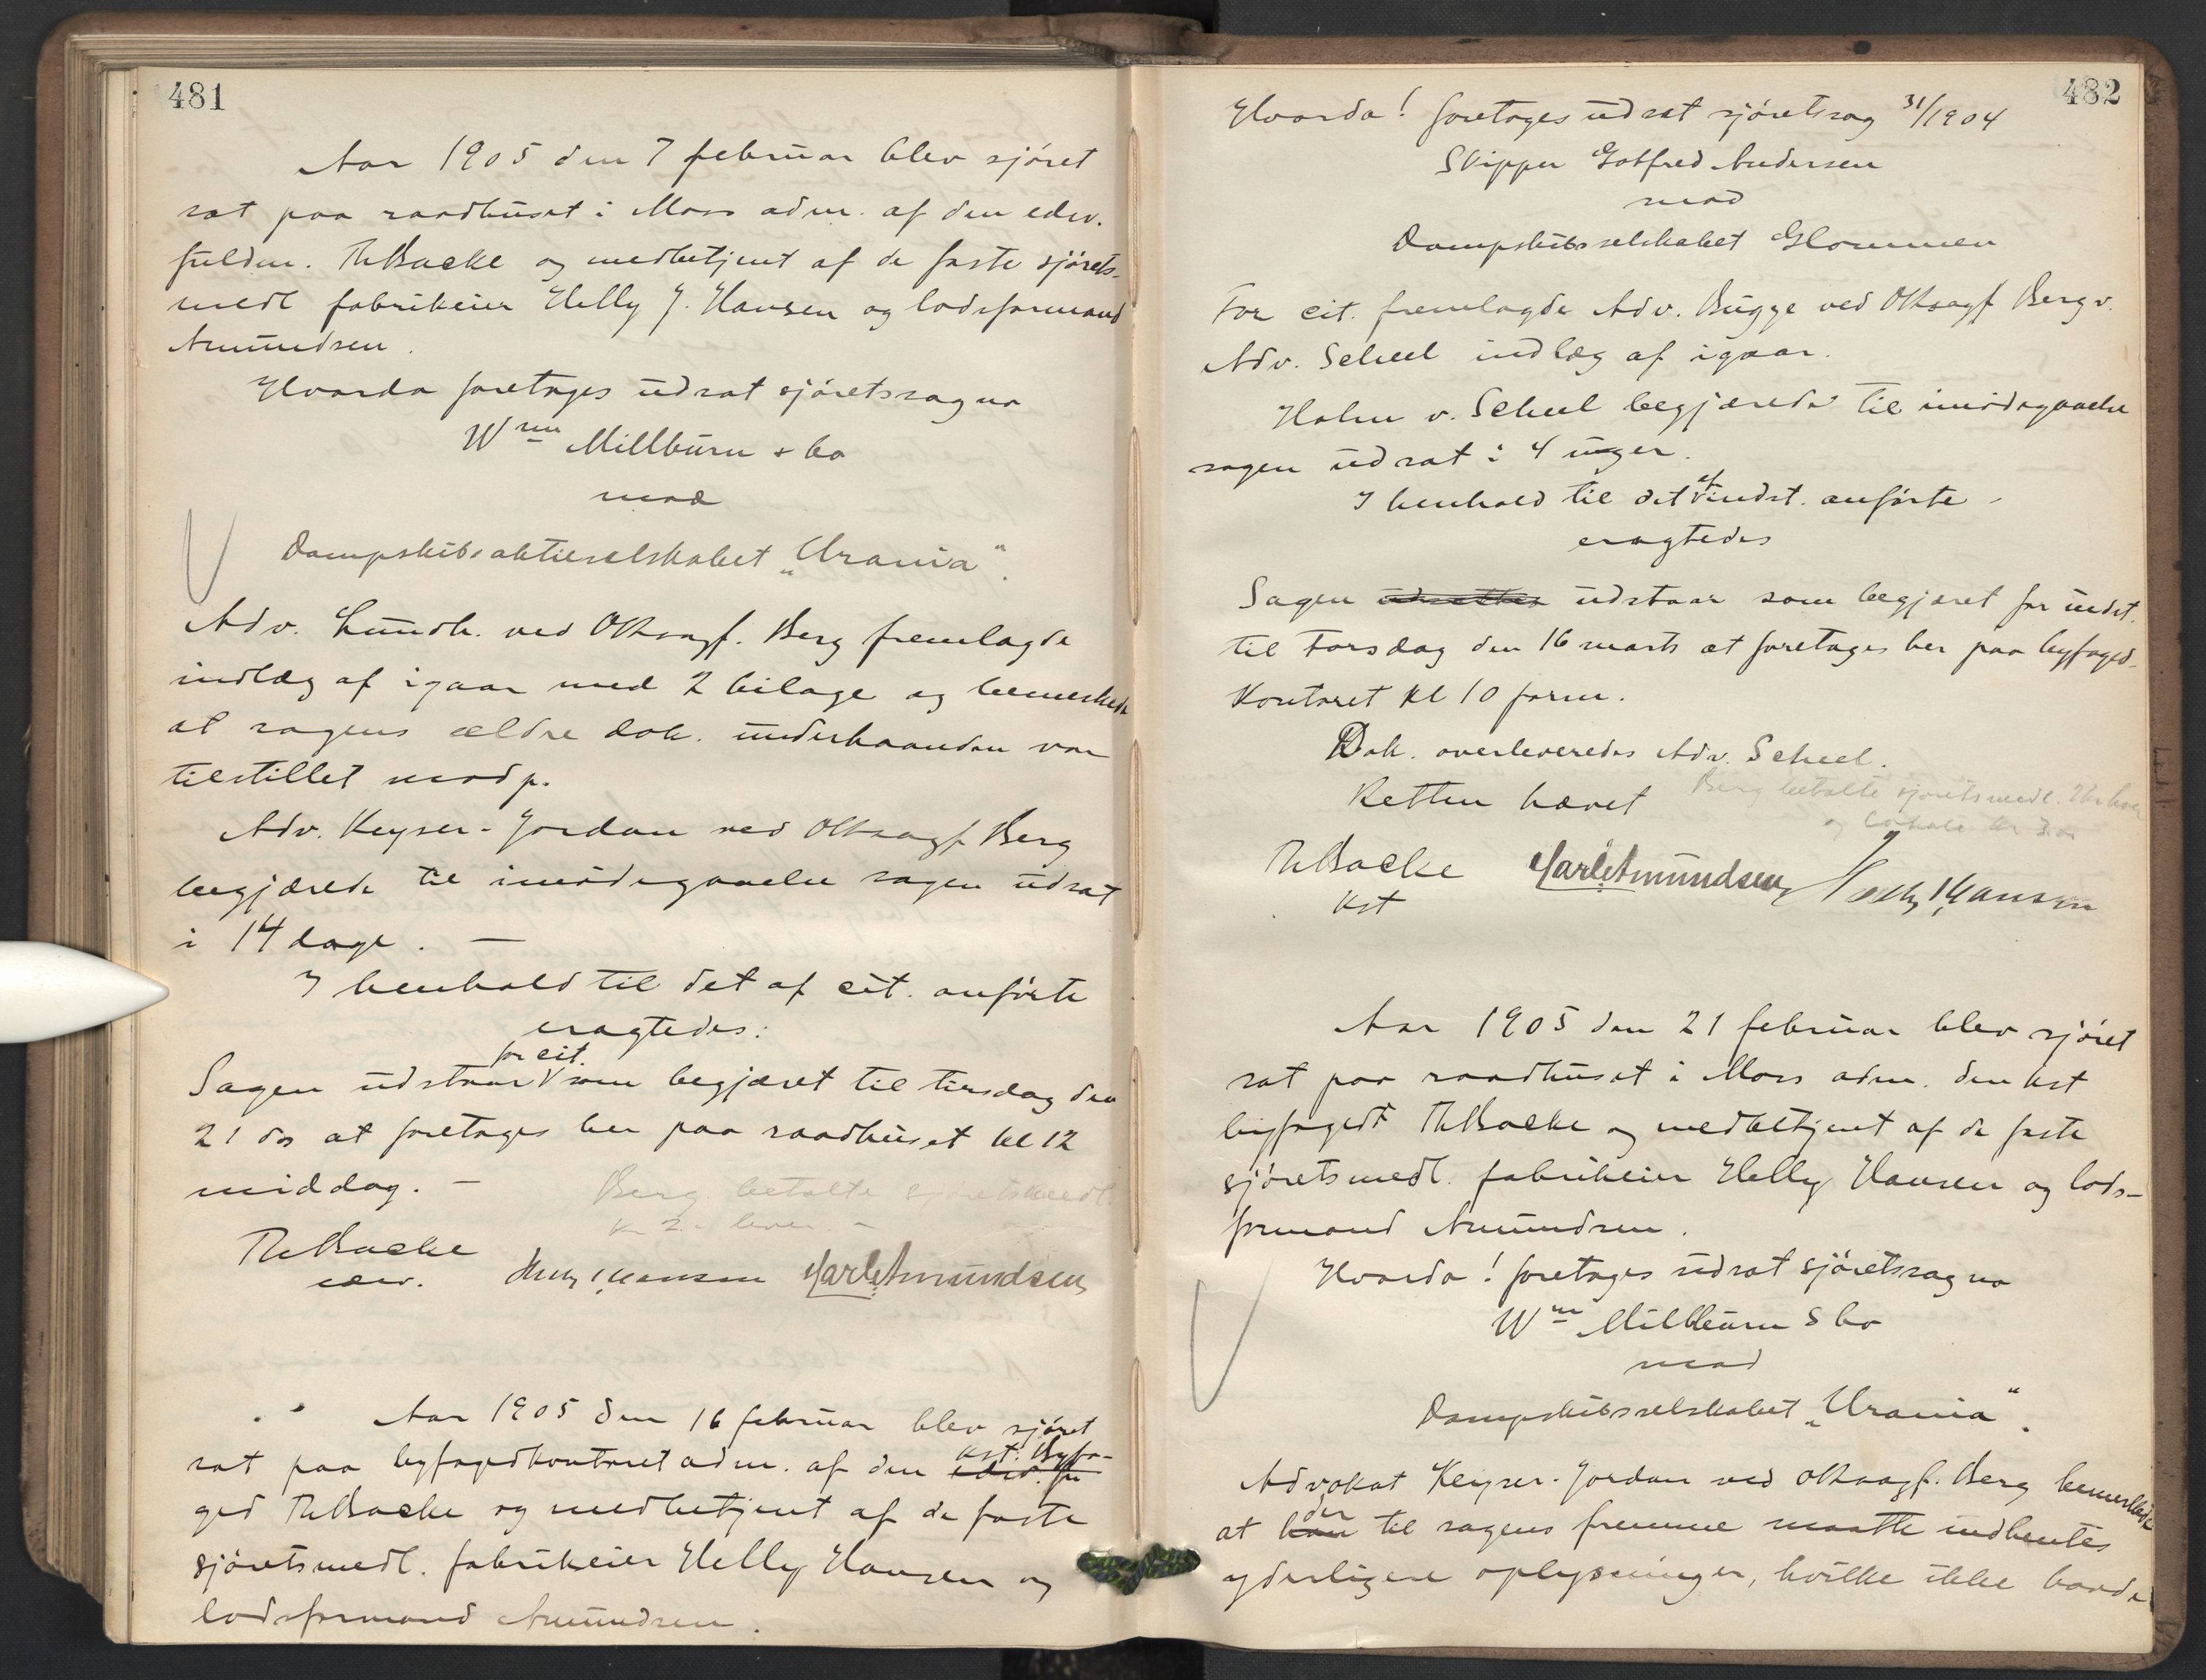 481
Aar 1905 den 7 februar blev sjöret
sat paa raadhuset i Moss adm. af den edsv.
fuldm. Th Backe og medbetjent af de faste sjörets-
medl fabrikeier Helly J. Hansen og lodsformand
Amundsen.
Hvorda foretoges udsat sjöretssag no
Wm Millburn & Co
mod
Dampskibsaktieselskabet „Urania“.
Adv. Lundh. ved ORsagf. Berg fremlagde
indlæg af igaar med 2 bilage og bemerkede
at sagens ældre dok. underhaanden var
tilstillet modp.
Adv. Keyser-Jordan ved ORsagf. Berg
begjærede til imödegaaelse sagen udsat
i 14 dage. —
I henhold til det af cit. anförte
eragtedes:
for cit.
Sagen udstaar som begjæret til tirsdag den
21 ds at foretages her paa raadhuset kl 12
middag. —
Berg betalte sjöretsmedl.
kr 2.- hver. -
Th Backe
edsv.
Helly J Hansen Karl Amundsen
Aar 1905 den 16 februar blev sjöret
kst. Byfo-
sat paa byfogedkontoret adm. af den edsv. fu
ged Th Backe og medbetjent af de faste
sjöretsmedl. fabrikeier Helly Hansen og
lodsformand Amundsen.
482
Hvorda! foretoges udsat sjöretssag 31/1904
Skipper Gotfred Andersen
mod
Dampskibsselskabet Glommen
For cit. fremlagde Adv. Bugge ved ORsagf Berg v.
Adv. Scheel indlæg af igaar.
Holm v. Scheel begjærede til imödegaaelse
sagen udsat i 4 uger.
af
I henhold til det indst. anförte -
eragtedes
Sagen udsættes udstaar som begjæret for indst.
til Torsdag den 16 marts at foretages her paa byfoged-
kontoret kl 10 form.
Dok. overleveredes Adv. Scheel.
Retten hævet
Berg betalte sjöretsmedl. 2 kr hver
og lokale kr
Th Backe
kst
Karl Amundsen Helly J Hansen
Aar 1905 den 21 februar blev sjöret
sat paa raadhuset i Moss adm. den kst
byfogedt Th Backe og medbetjent af de faste
sjöretsmedl. fabrikeier Helly Hansen og lods-
formand Amundsen.
Hvorda! foretoges udsat sjöretssag no
Wm Millburn & Co
mod
Dampskibsselskabet „Urania“.
Advokat Keyser-Jordan ved ORsagf. Berg bemerkede
der
at han til sagens fremme maatte indhentes
yderligere oplysninger, hvilke ikke havde